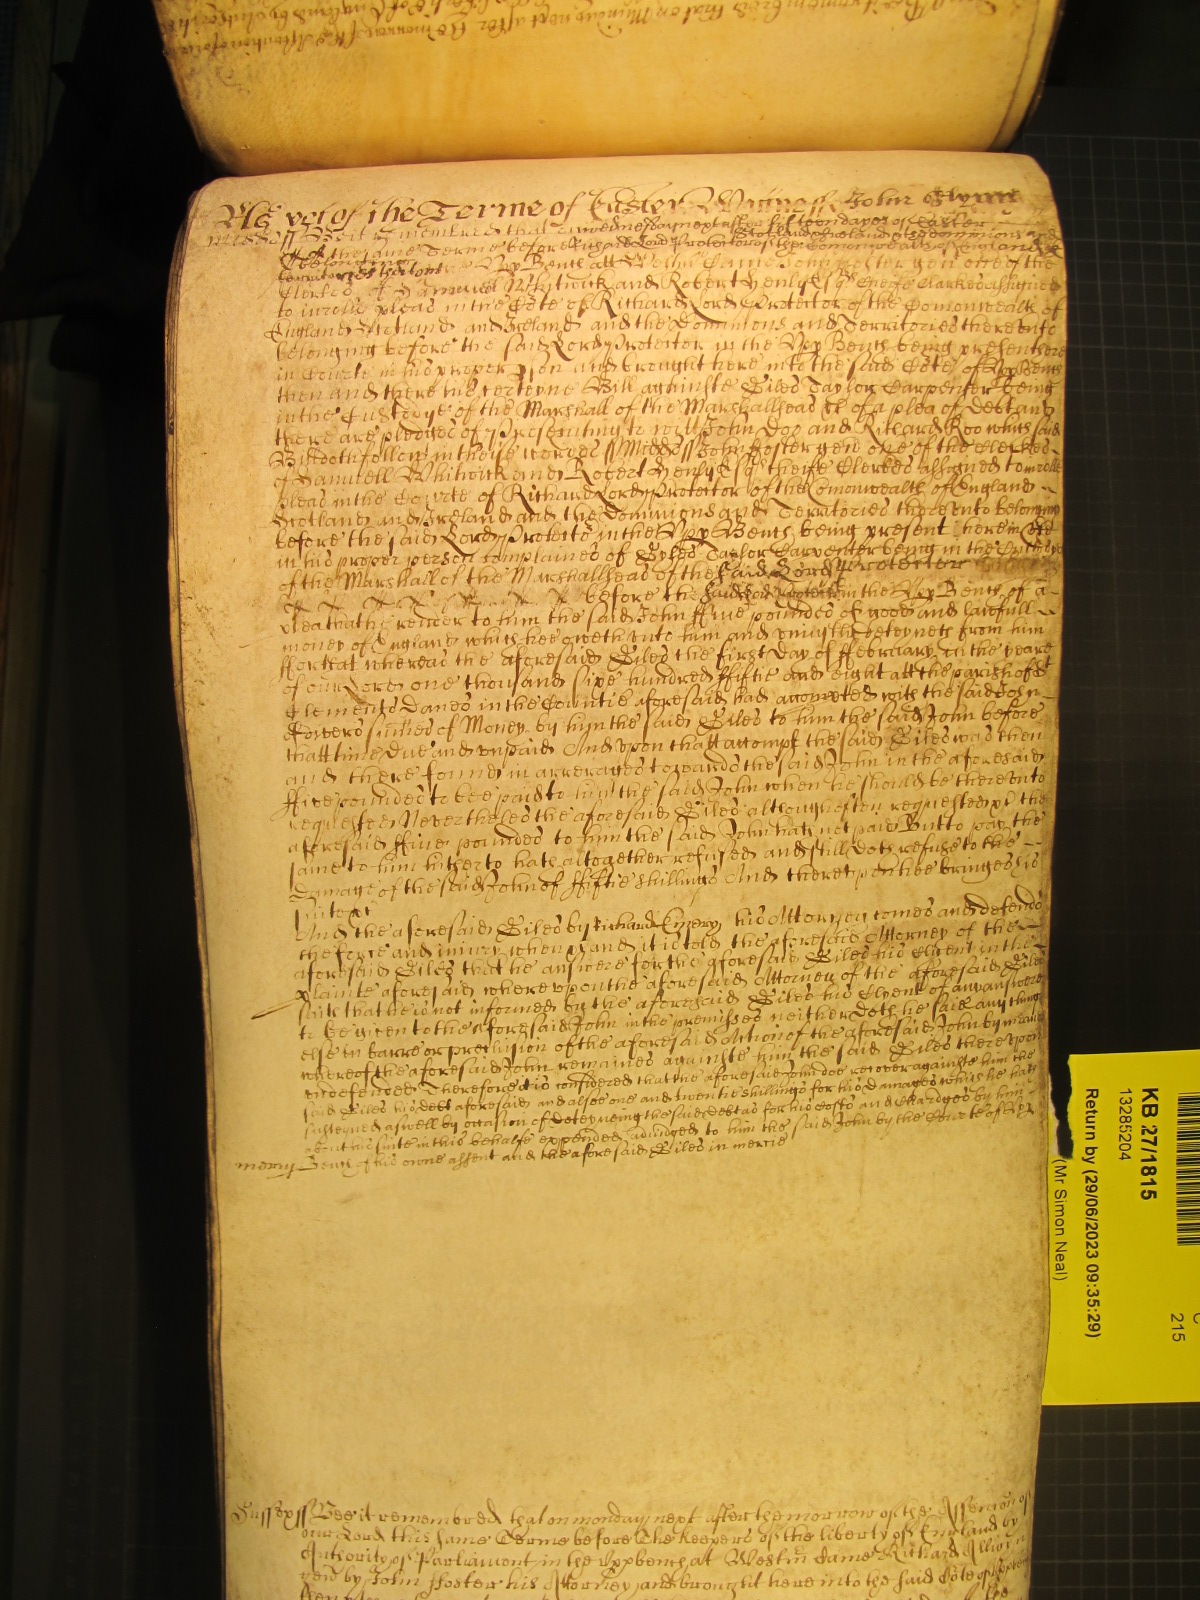 As yet of the Terme of Easter Wittnes John Glynn
Midds ss Bee it remembred that on wednesday next after fifteen dayes of Easter
the same Terme before Richard Lord Protector of the Comonwealth of England
Scotland & Ireland & the dominions and
territories thereunto belonging
in the Upp Bench att Westm Came John ffoster gen one of the
Clerkes of Samuell Whitwick and Robert Henly Esqrs Cheife Clarkes assigned
to inrolle pleas in the Cote of Richard Lord Protector of the Comonwealth of
England Scotland and Ireland and the Dominions and Territories thereunto
belonging before the said Lord Protector in the Upp Bench being present here
in Courte in his proper pson and brought here into the said Cote of Upp Bench
then and there his certeyne Bill againste Giles Taylor Carpenter being
in the Custodye of the Marshall of the Marshallsea &c of a plea of Debt and
there are pledges of Prosecuting to witt John Doo and Richard Roo which said
Bill doth follow in these wordes ss Midds ss John ffoster gen one of the Clerkes
of Samuell Whitwick and Robert Henly Esqrs cheife Clerkes assigned to inrolle
pleas in the Courte of Richard Lord Protector of the Comonwealth of England
Scotland and Ireland and the Dominions and Territories thereunto belonging
before the said Lord Protector in the Upp Bench being present here in Cote
in his proper person complaines of Gyles Taylor Carpenter being in the Custodye
of the Marshall of the Marshallsea of the said Lord Protector
before the said Lord Protector in the Upp Bench of a
plea that he render to him the said John ffive poundes of good and lawfull
money of England which hee oweth unto him and uniustly deteyneth from him
ffor that whereas the aforesaid Giles the first day of ffebruary in the yeare
of our Lord one thousand sixe hundred ffiftie and eight att the parish of St
Clements Danes in the Countie aforesaid had accompted with the said John
ffor divers summes of Money by him the said Giles to him the said John before
that time due and unpaid And upon that accompt the said Giles was then
and there found in arrerages towards the said John in the aforesaid
ffive poundes to bee paid to him the said John when he should be thereunto
requested Neverthelesse the aforesaid Giles although often requested &c the
aforesaid ffive poundes to him the said John hath not paid But to pay the
same to him hitherto hath altogether refused and still doth refuse to the
Damage of the said John of ffiftie shillings And thereupon hee bringes his
suite &c
And the aforesaid Giles by Richard Emery his Attorney comes and defends
the force and iniury when &c and it is told the aforesaid Attorney of the
aforesaid Giles that he answere for the aforesaid Giles his Clyent in the
plainte aforesaid whereupon the aforesaid Attorney of the aforesaid Giles
saith that he is not informed by the aforesaid Giles his Clyent of any answere
to be given to the aforesaid John in the premisses neither doth he said any thing
else in barre or preclusion of the aforesaid Action of the aforesaid John by meanes
whereof the aforesaid John remaines againste him the said Giles thereupon
undefended Therefore it is considered that the aforesaid John doe recover againste him the
said Giles his debt aforesaid and alsoe one and twentie shillings for his Damages which he hath
susteyned aswell by occasion of deteyneing the said debt as for his costs and Chardges by him
about his suite in this behalfe expended adiudged to him the said John by the Courte of Upp
mercy Bench of his owne assent and the aforesaid Giles in mercie
Sussex ss Bee it remembred that on monday next after the morrow of the Assencion of
our Lord this same Terme before The keepers of the liberty of England by
Authority of Parliament in the Uppbench at Westm Came Richard
gen by John ffoster his Attorney and brought here into the said Cote of Uppben
KB 27/1815
13285204
Return by (29/06/2023 09:35:29)
(Mr Simon Neal)
215